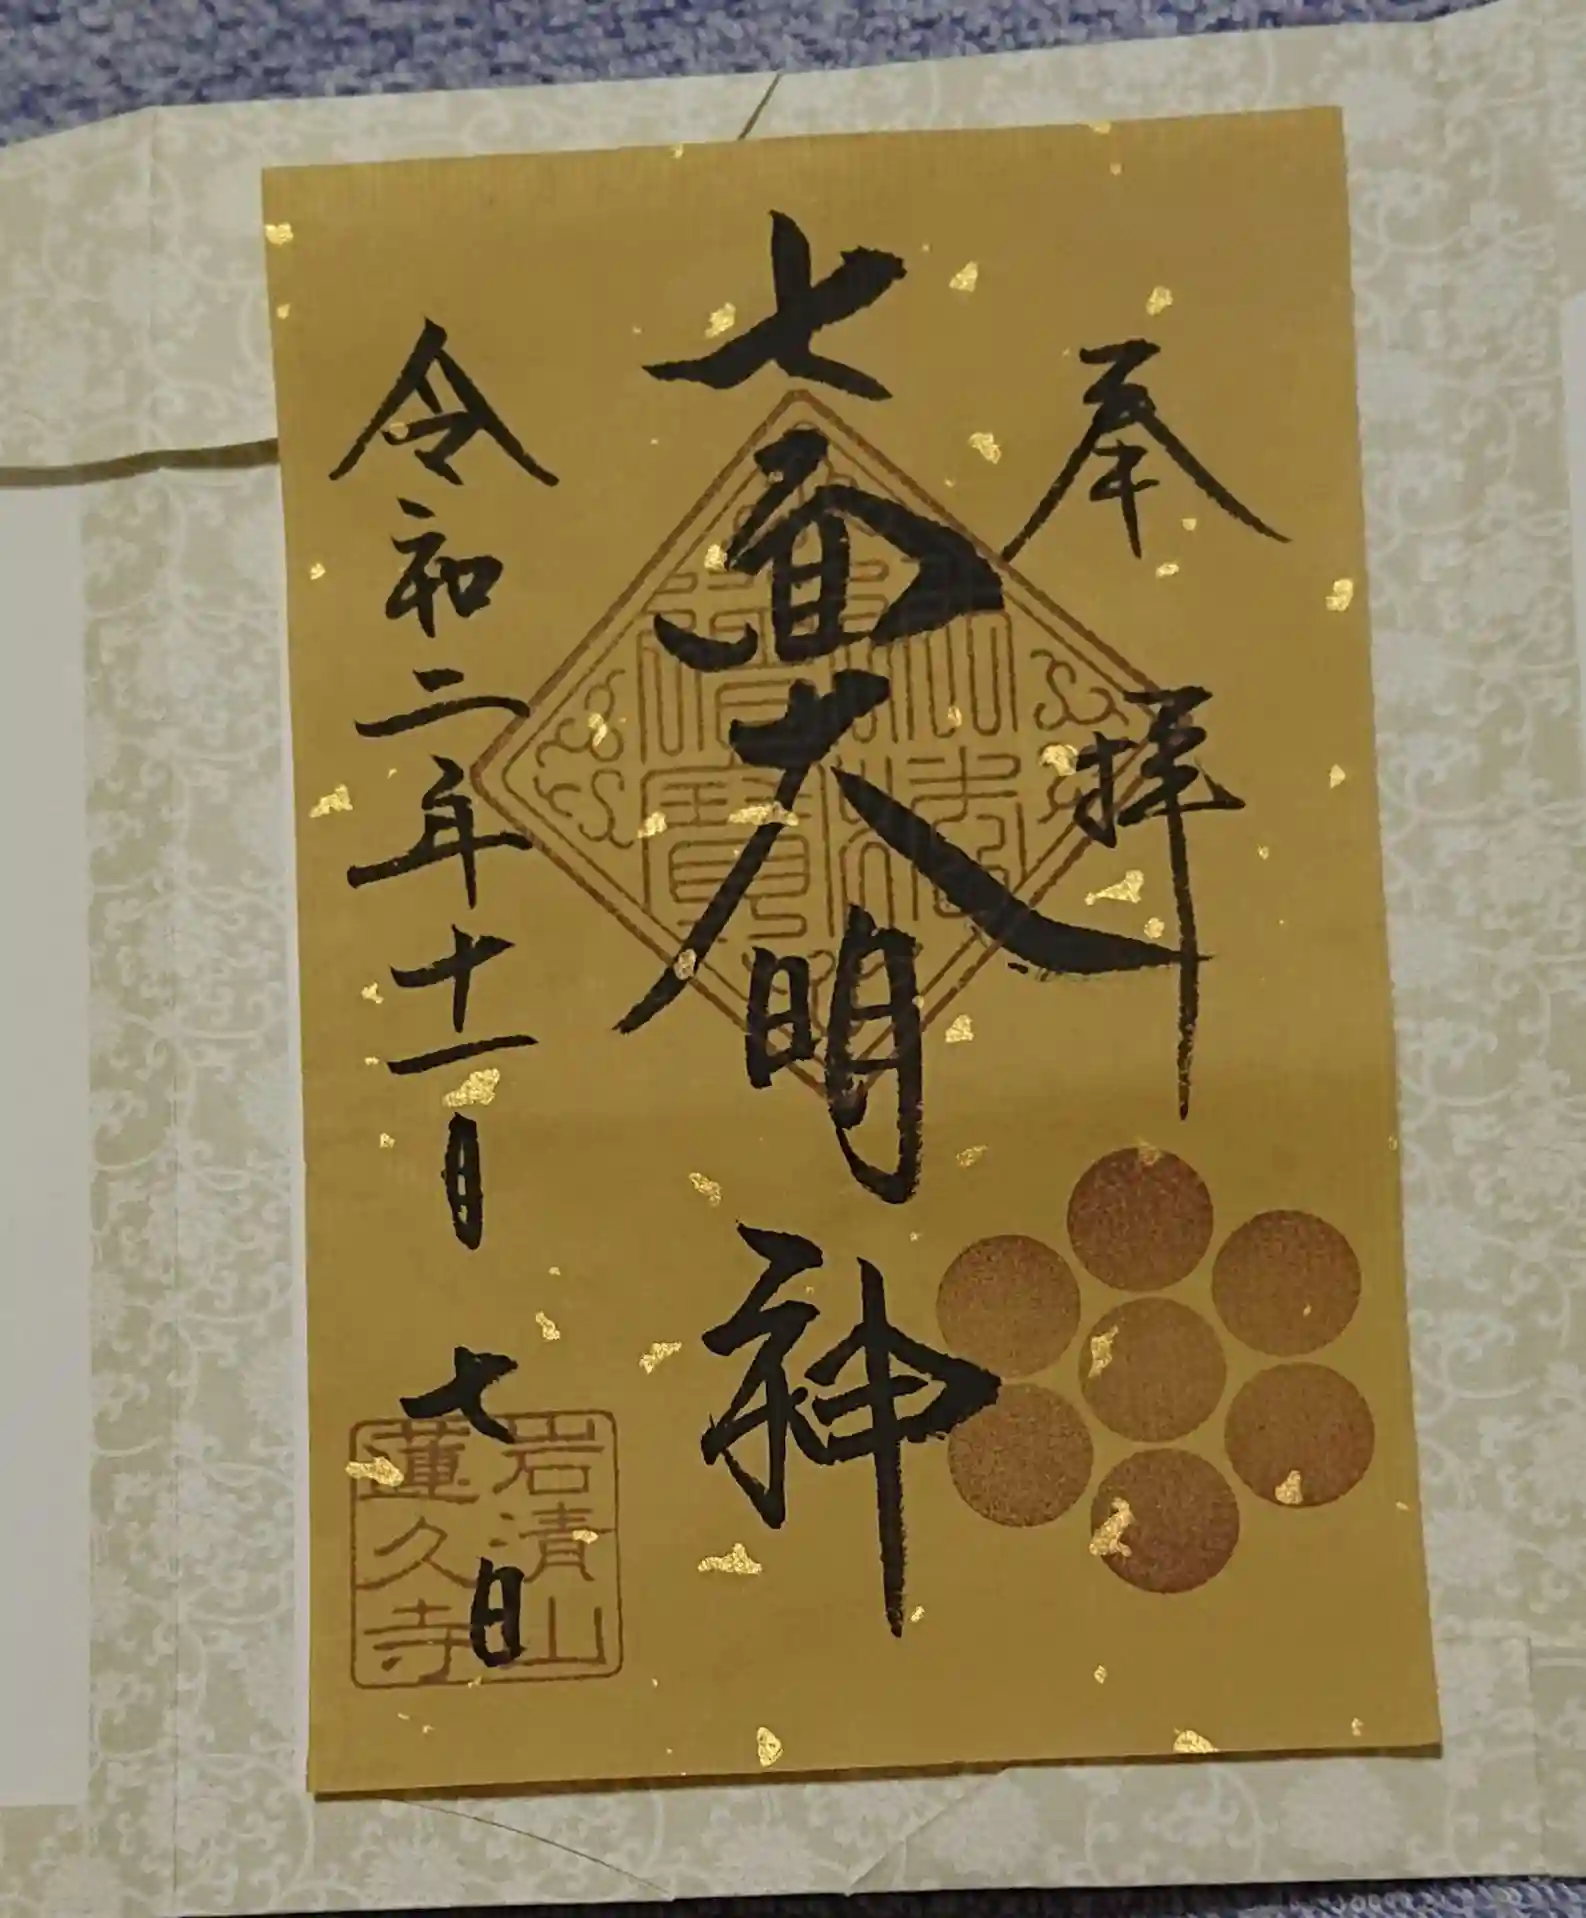 奉拝
七面大明神
令和二年十一月七日
岩清山
蓮久寺